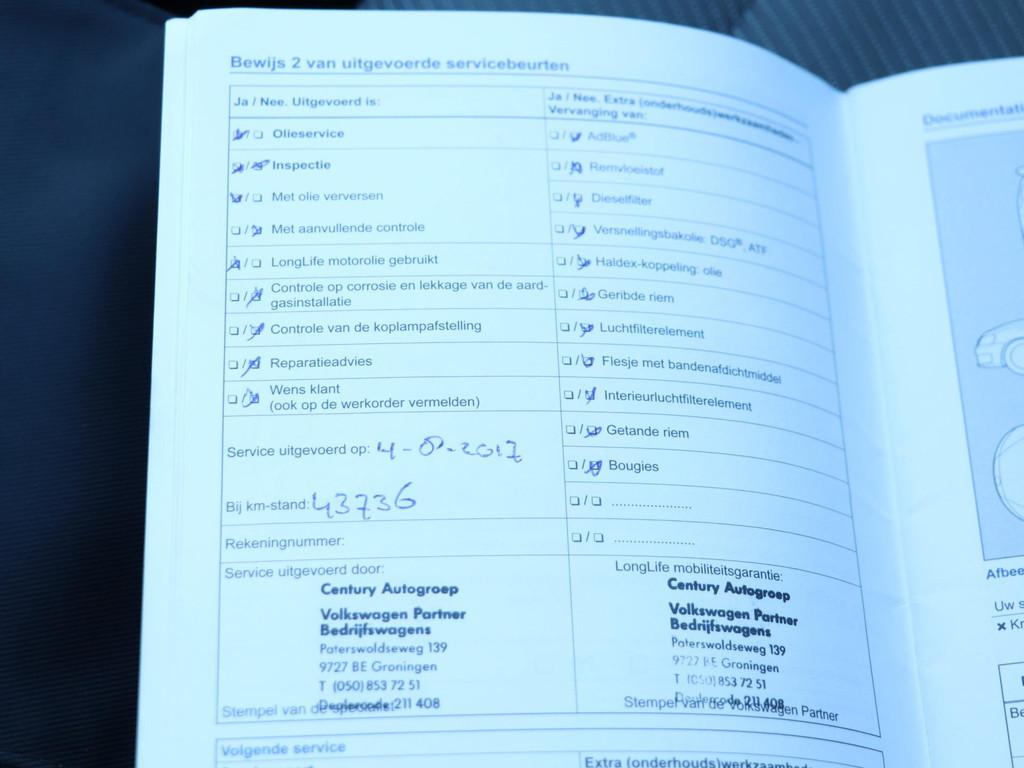 Bewijs 2 van uitgevoerde servicebeurten
Ja / Nee. Uitgevoerd is:
☐ Olieservice
Inspectie
/ ☐ Met olie verversen
☐ / Met aanvullende controle
/ ☐ LongLife motorolie gebruikt
☐ / Controle op corrosie en lekkage van de aard-
gasinstallatie
☐ / Controle van de koplampafstelling
☐ / Reparatieadvies
☐ / Wens klant
(ook op de werkorder vermelden)
Service uitgevoerd op: 4-0-2017
Bij km-stand: 43736
Rekeningnummer:
Ja / Nee. Extra (onderhouds)werkzaamheden
Vervanging van:
☐ / AdBlue®
☐ / Remvloeistof
☐ / Dieselfilter
☐ / Versnellingsbakolie: DSG®, ATF
☐ / Haldex-koppeling: olie
☐ / Geribde riem
☐ / Luchtfilterelement
☐ / Flesje met bandenafdichtmiddel
☐ / Interieurluchtfilterelement
☐ / Getande riem
☐ / Bougies
☐ / ☐ .....................
☐ / ☐ .....................
Service uitgevoerd door:
Century Autogroep
Volkswagen Partner
Bedrijfswagens
Paterswoldseweg 139
9727 BE Groningen
T (050) 853 72 51
Dealercode 211 408
Stempel van de specialist
LongLife mobiliteitsgarantie:
Century Autogroep
Volkswagen Partner
Bedrijfswagens
Paterswoldseweg 139
9727 BE Groningen
T (050) 853 72 51
Dealercode 211 408
Stempel van de Volkswagen Partner
Volgende service
Extra (onderhouds)werkzaamheden
Documentati
Afbee
Uw s
× Kr
Be